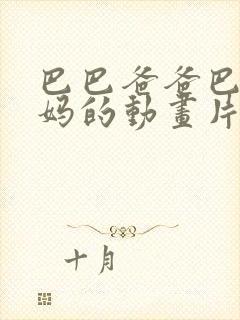 巴巴爸爸巴
妈的動畫片
十月